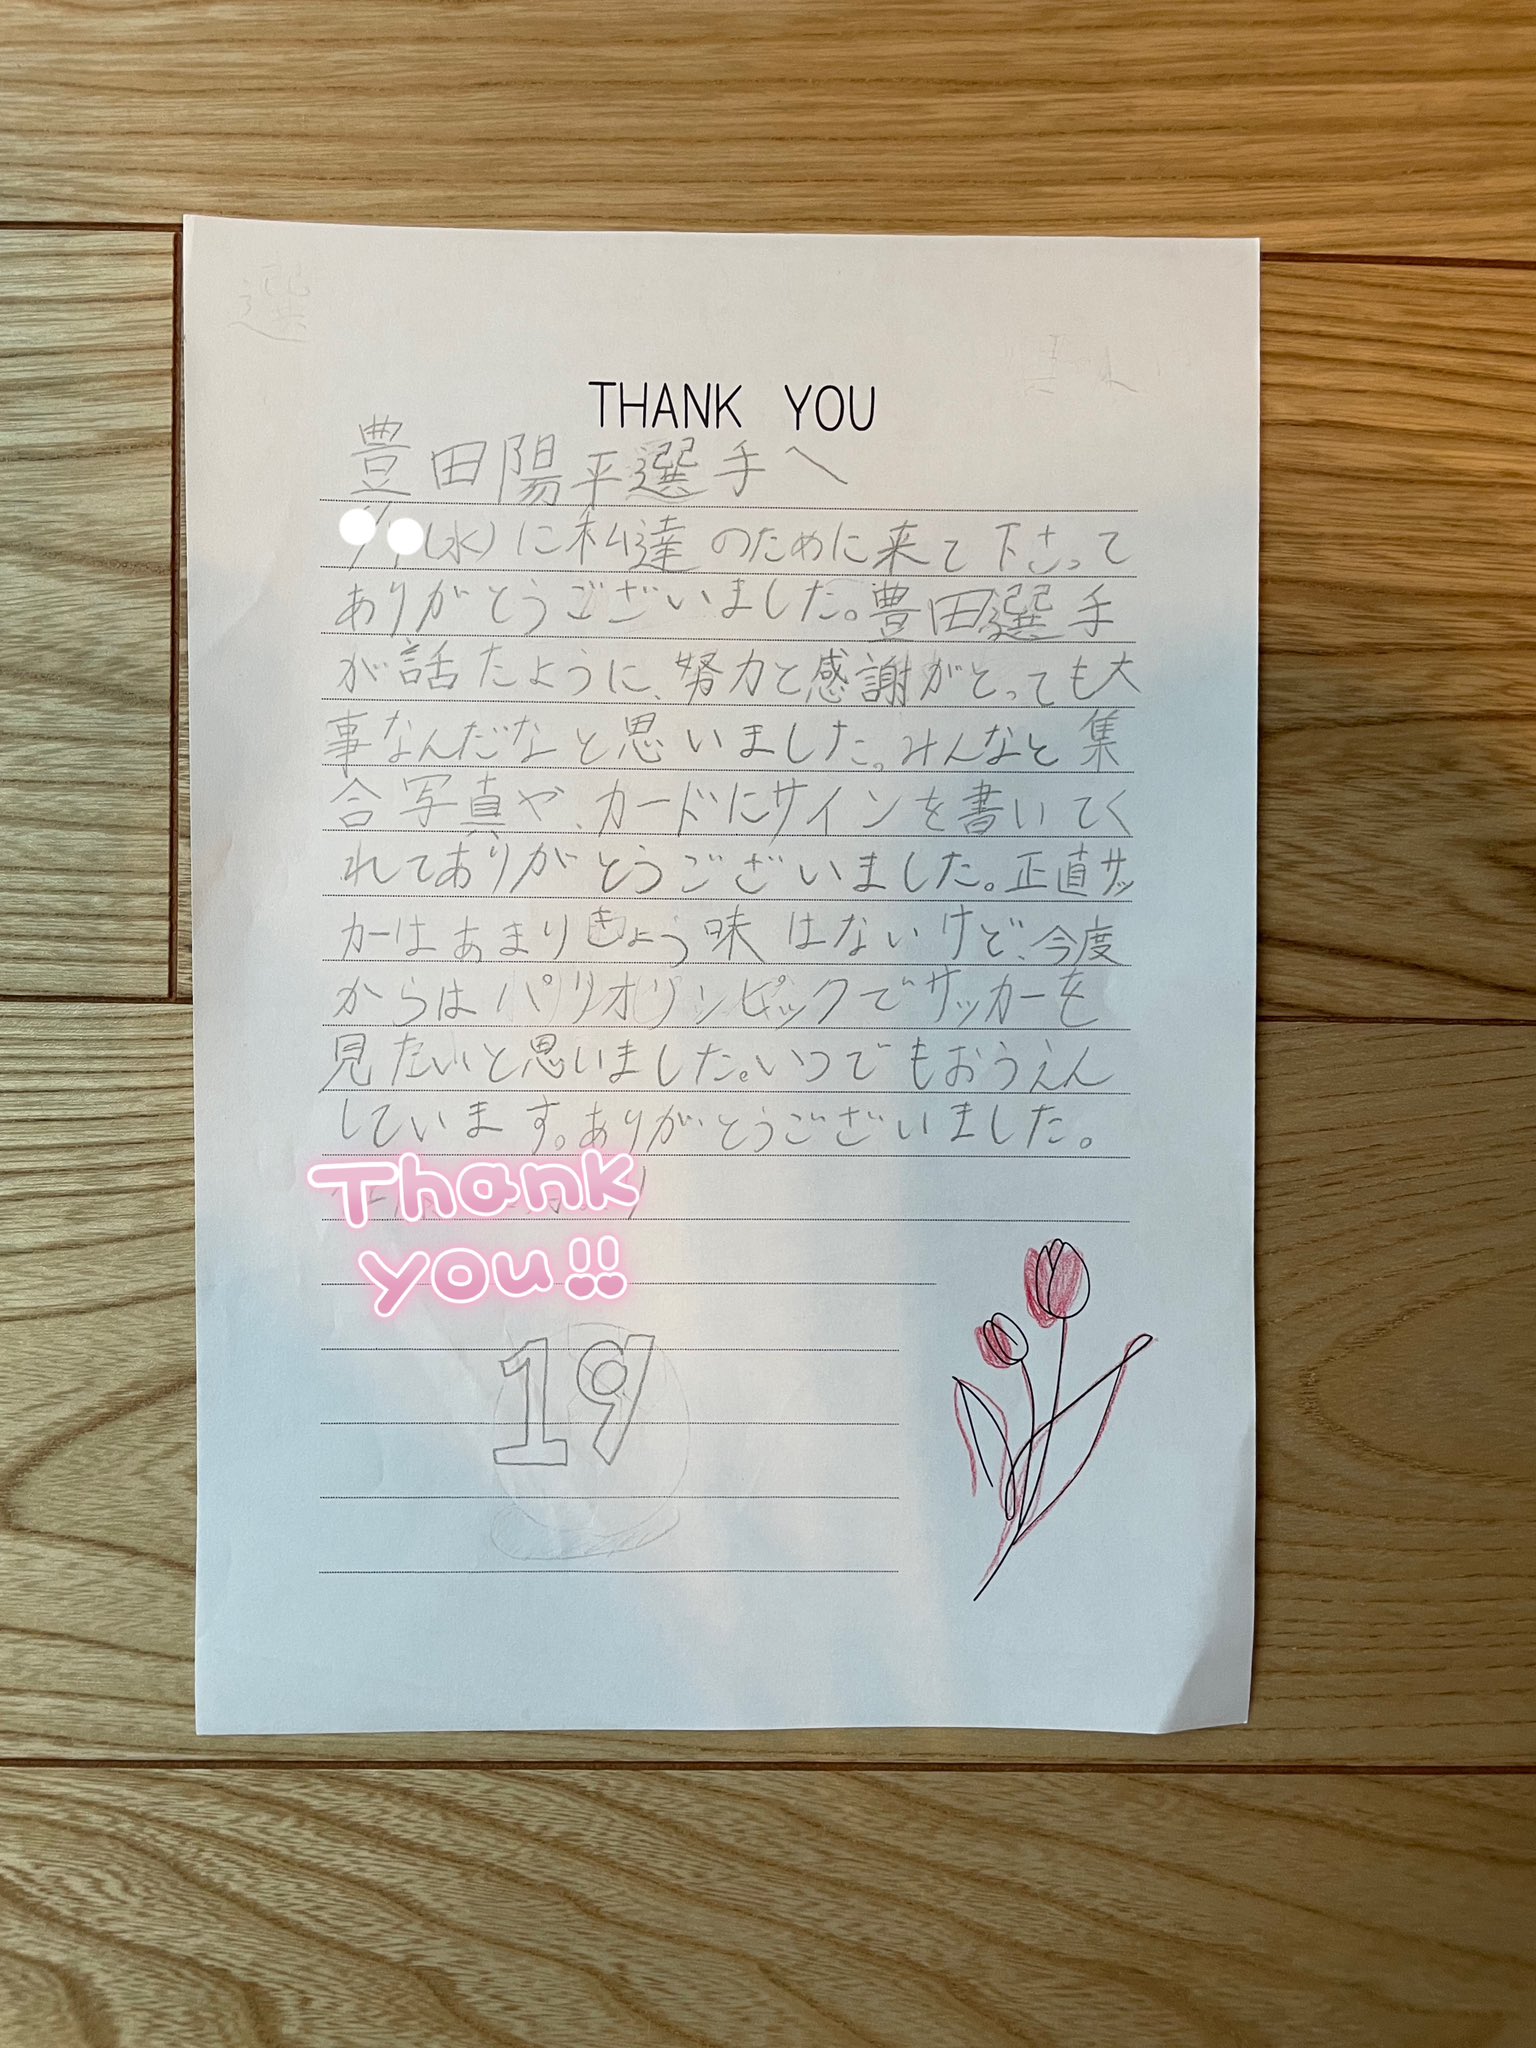 THANK YOU
豊田陽平選手へ
(水)に私達のために来て下さって
ありがとうございました。豊田選手
が話たように、努力と感謝がとっても大
事なんだなと思いました。みんなと集
合写真や、カードにサインを書いてく
れてありがとうございました。正直サッ
カーはあまりきょう味はないけど、今度
からはパリオリンピックでサッカーを
見たいと思いました。いつでもおうえん
しています。ありがとうございました。
Thank
you!!
19
選